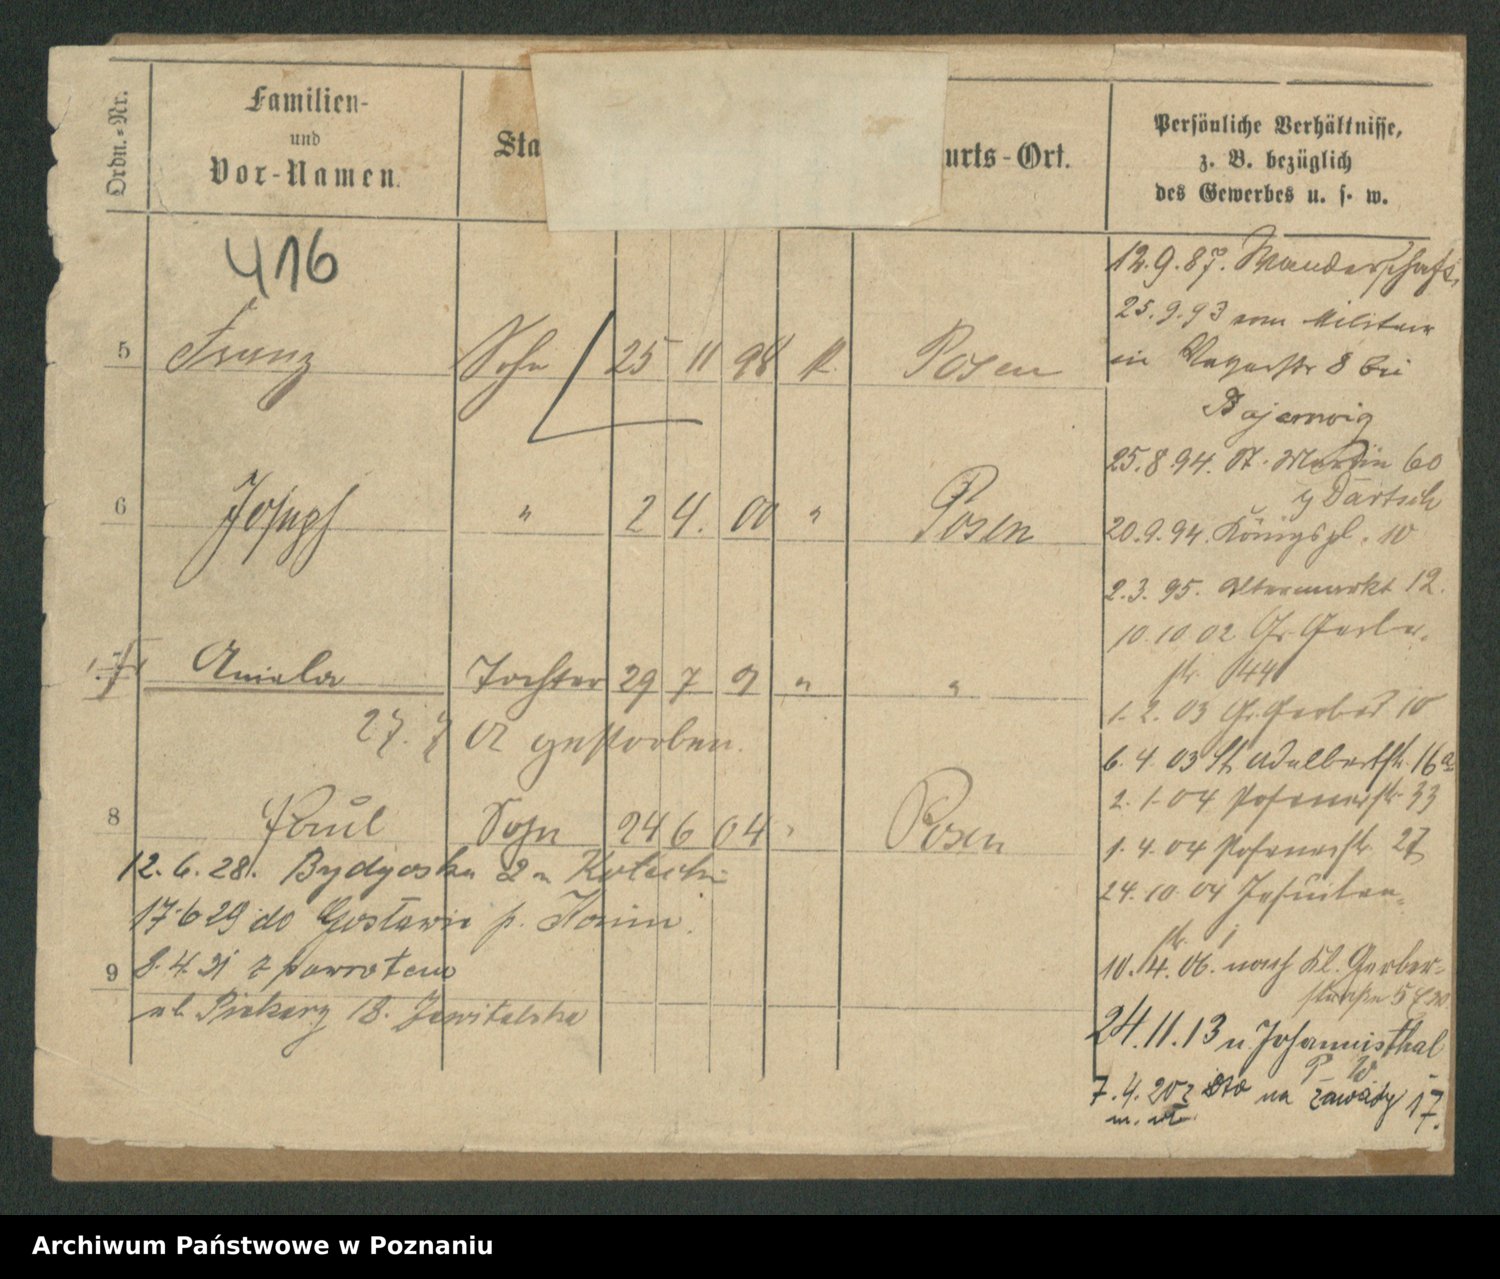 Ordn.-Nr.
Familien-
und
Vor-Namen.
Sta
urts-Ort.
Persönliche Verhältnisse,
z. B. bezüglich
des Gewerbes u. s. w.
416
5 Franz Sohn 25 11 98 k. Posen
6 Joseph " 2 4. 00 " Posen
7 Aniela Tochter 29 7 "  "
27. 7 02 gestorben.
8 Paul Sohn 24 6 04 " Posen
12. 6. 28. Bydgoska 2
17.6 29 do p.
9 8. 4. 31 z powrotem
ul Piekary 18.
12. 9. 87. Wanderschaft.
25. 9. 93 vom Militair
in 8 bei
25. 8 94. St. Martin 60
Bartsch
20. 9. 94. Königspl. 10
2. 3. 95. Altermarkt 12.
10. 10 02 Gr. Gerber-
str. 44
1. 2. 03 Gr. Gerber 10
6. 4. 03 St Adalbertstr. 16a
2. 1. 04 Posenerstr. 33
1. 4. 04 Posenerstr. 27
24. 10. 04 Jesuiten-
str.
10. 4. 06. nach Kl. Gerber-
straße 5
24. 11. 13 n. Johannisthal
P. W
7. 4. 20 z dto na Zawady 17.